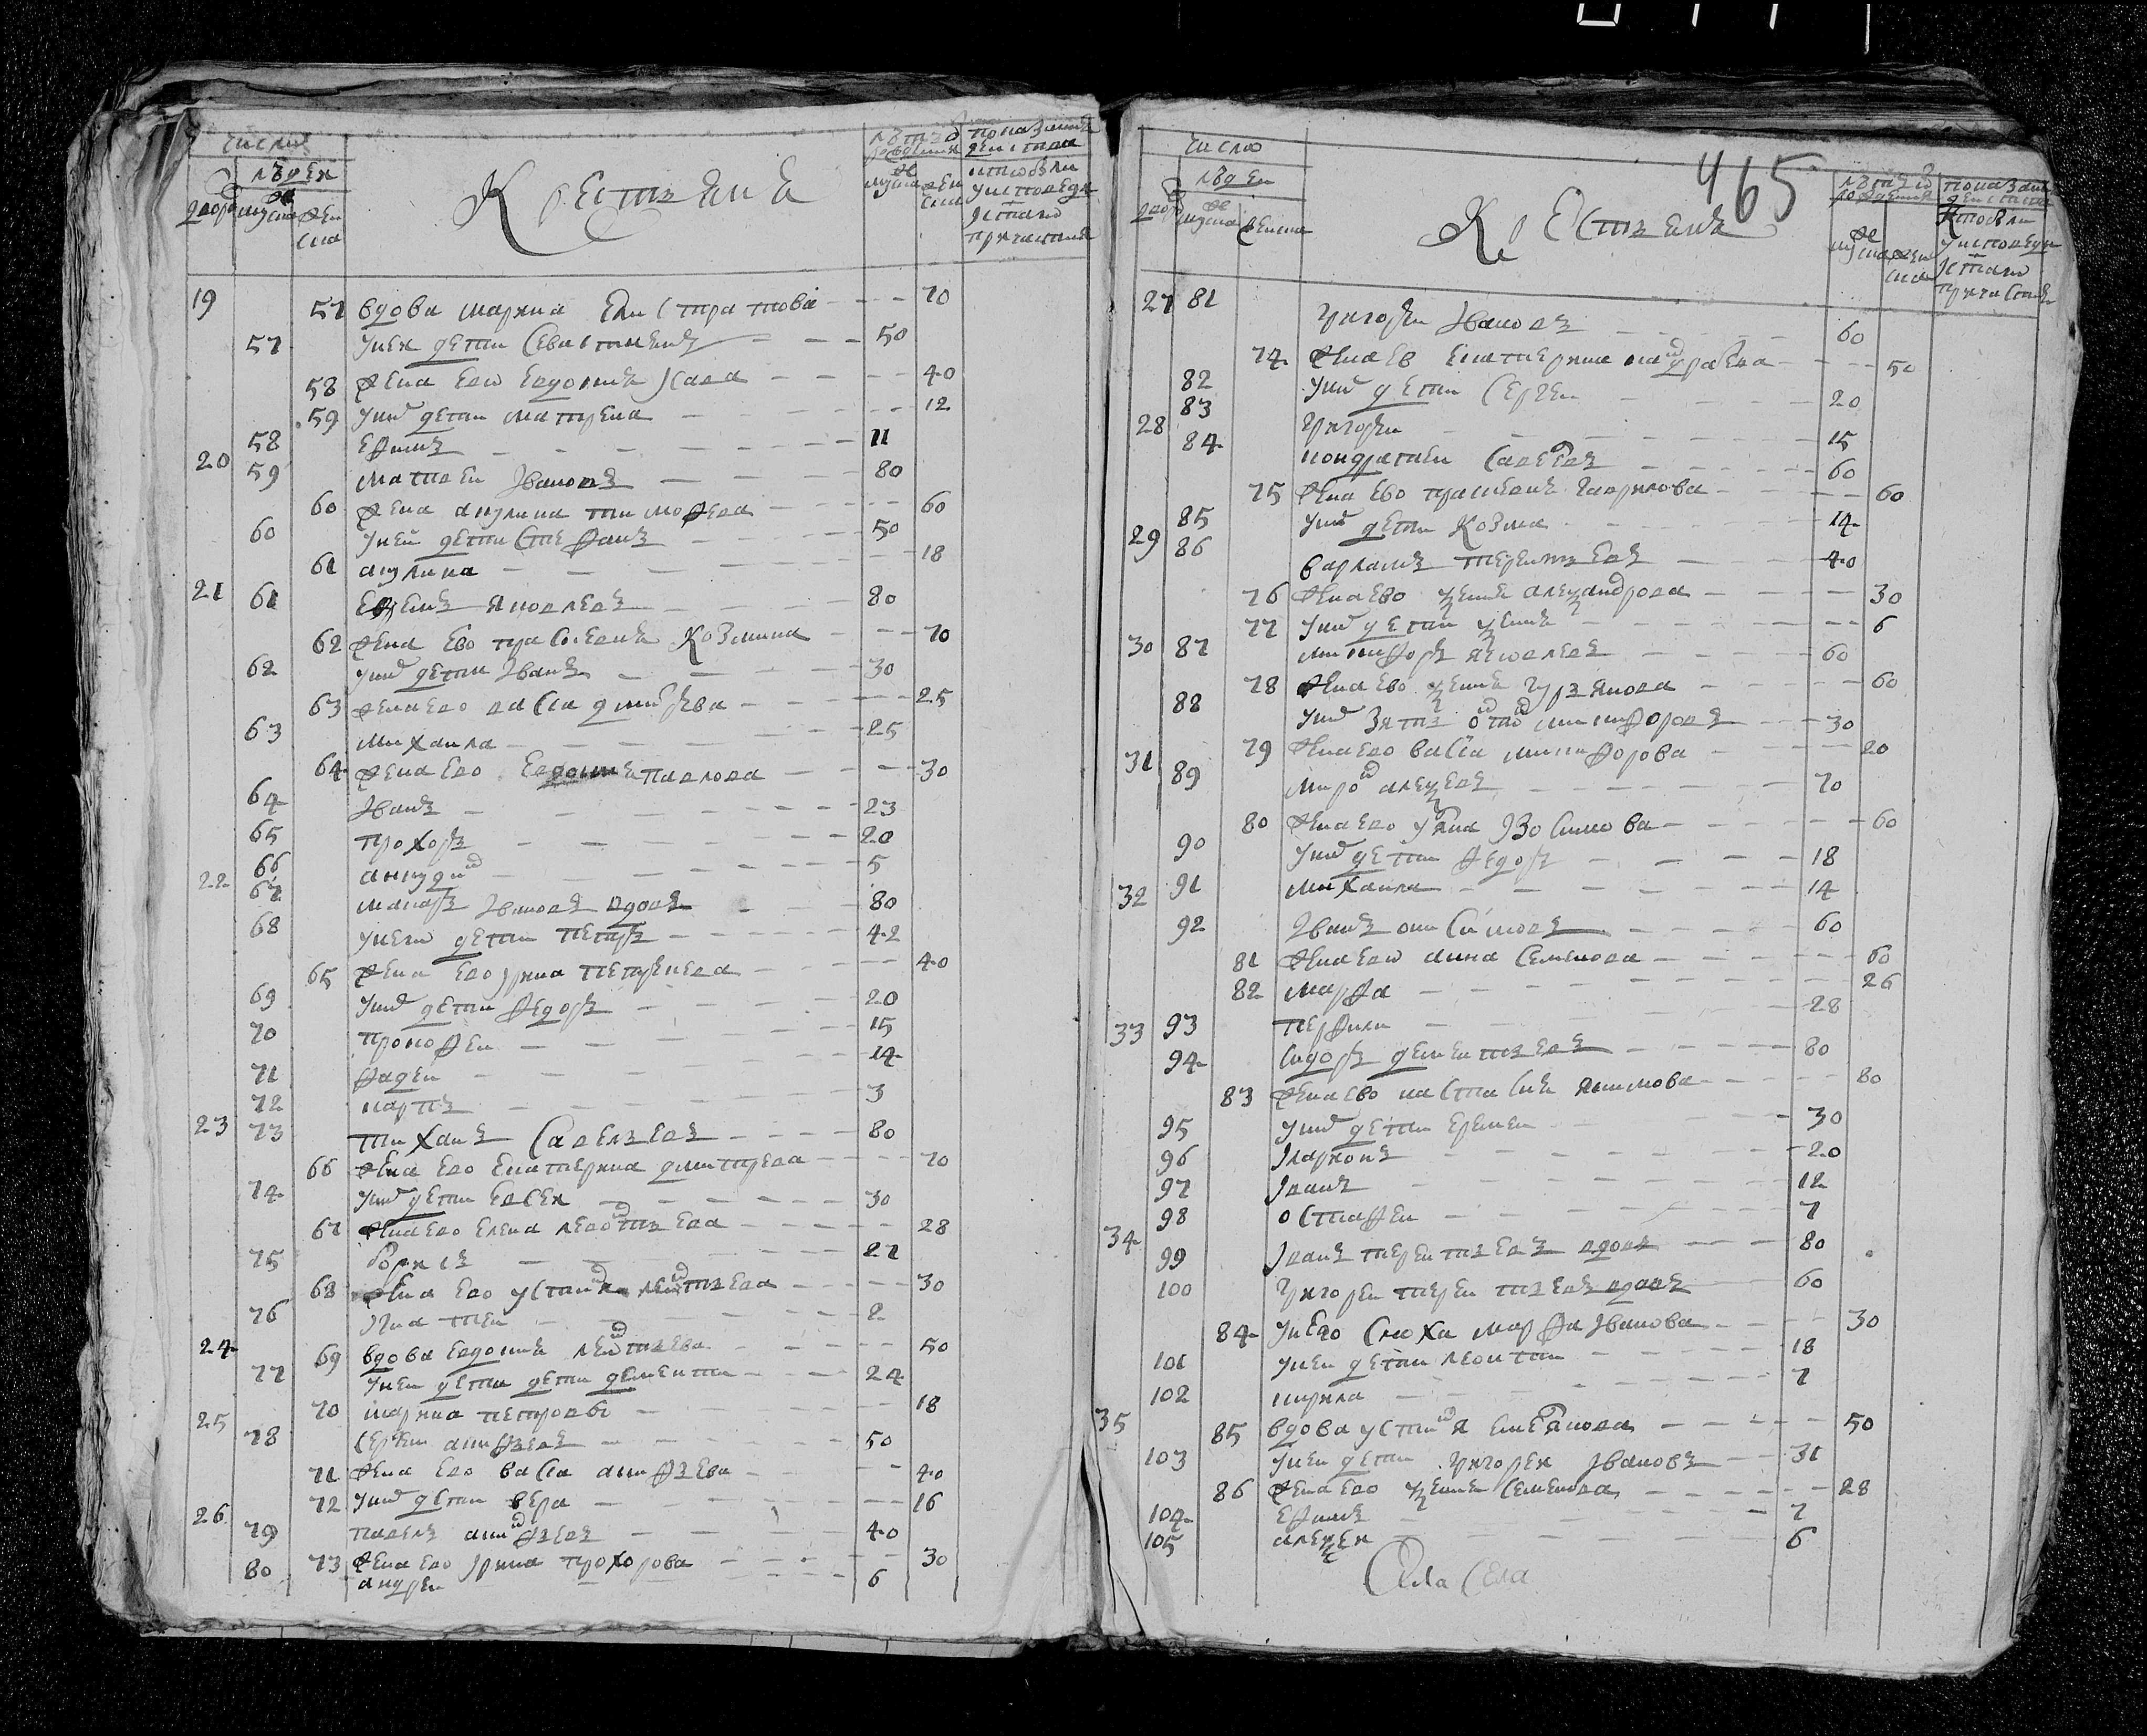 число
людеи
дворов
мужеска
женска
Крестьяня
лет от рождения
мужеска
женска
показание действа кто был у исповеди и с̑таго причастия
19 57 вдова марина Елистратова 70
57 у неи дети Севастиянъ 50
58 жена ево Евдокия Исаева 40
59 у них дети матрена 12
58 Ефимъ 11
20 59 матвеи Ивановъ 80
60 жена акулина тимофеева 60
60 у них дети Степанъ 50
61 акулина 18
21 61 Яковлевъ 80
62 жена ево прасковия Козмина 70
62 у них дети Иванъ 30
63 жена ево васса дмитрева 25
63 михаила 25
64 жена ево Евдокия павлова 30
64 Иванъ 23
65 прохоръ 20
66 5
22 67 макаръ Ивановъ вдовъ 80
68 у него дети петръ 42
65 жена ево Ирина 40
69 у них дети федоръ 20
70 прокофеи 15
71 фадеи 14
72 карпъ 3
23 73 тиханъ Савельевъ 80
66 жена ево Екатерина дмитрева 70
74 у них дети Евсеи 30
67 жена ево Елена леонтьева 28
75 Борисъ 27
68 жена ево устиния леонтьева 30
76 Игнатеи 2
24 69 вдова Евдокия леонтьева 50
77 у неи дети дети дементи 24
70 марина петровы 18
25 78 Сергеи 50
71 жена ево васса 40
72 у них дети вера 16
26 79 павелъ 40
73 жена ево Ирина прохорова 30
80 андреи 6
465
число
людеи
дворов
мужеска
женска
Крестьяня
лет от рождения
мужеска
женска
показание действа кто был у исповеди и с̑таго причастия
27 81 Григореи Ивановъ 60
74 жена ев Екатерина кондратева 50
82 у них дети Сергеи 20
83 Григореи 15
28 84 кондратеи Савелевъ 60
75 жена ево прасковия Гаврилова 60
85 у них дети Козма 14
29 86 варламъ терентьевъ 40
76 жена ево ксения александрова 30
77 у них дети ксения 6
30 87 микифоръ яковлевъ 60
78 жена ево ксения Гурьянова 60
88 у них зять микифоровъ 30
79 жена ево васса микифорова 20
31 89 миро алексеевъ 70
80 жена ево улияна Изосимова 60
90 у них дети федоръ 18
91 михаила 14
32 92 Иванъ онисимовъ 60
81 жена ево анна Семенова 60
82 марфа 26
93 перфили 28
33 94 сидоръ дементьевъ 80
83 жена ево настасия якимова 80
95 у них дети Еремеи 30
96 Иларионъ 20
97 Иванъ 12
98 остафеи 7
34 99 Иванъ терентьевъ вдовъ 80
100 Григореи терентьевъ вдовъ 60
84 у него сноха марфа Иванова 30
101 у неи дети леонтии 18
102 кирила 7
35 85 вдова устиния Емелянова 50
103 у неи дети Григореи Ивановъ 31
86 жена ево ксения Семенова 28
104 Ефимъ 7
105 алексеи 6
Села